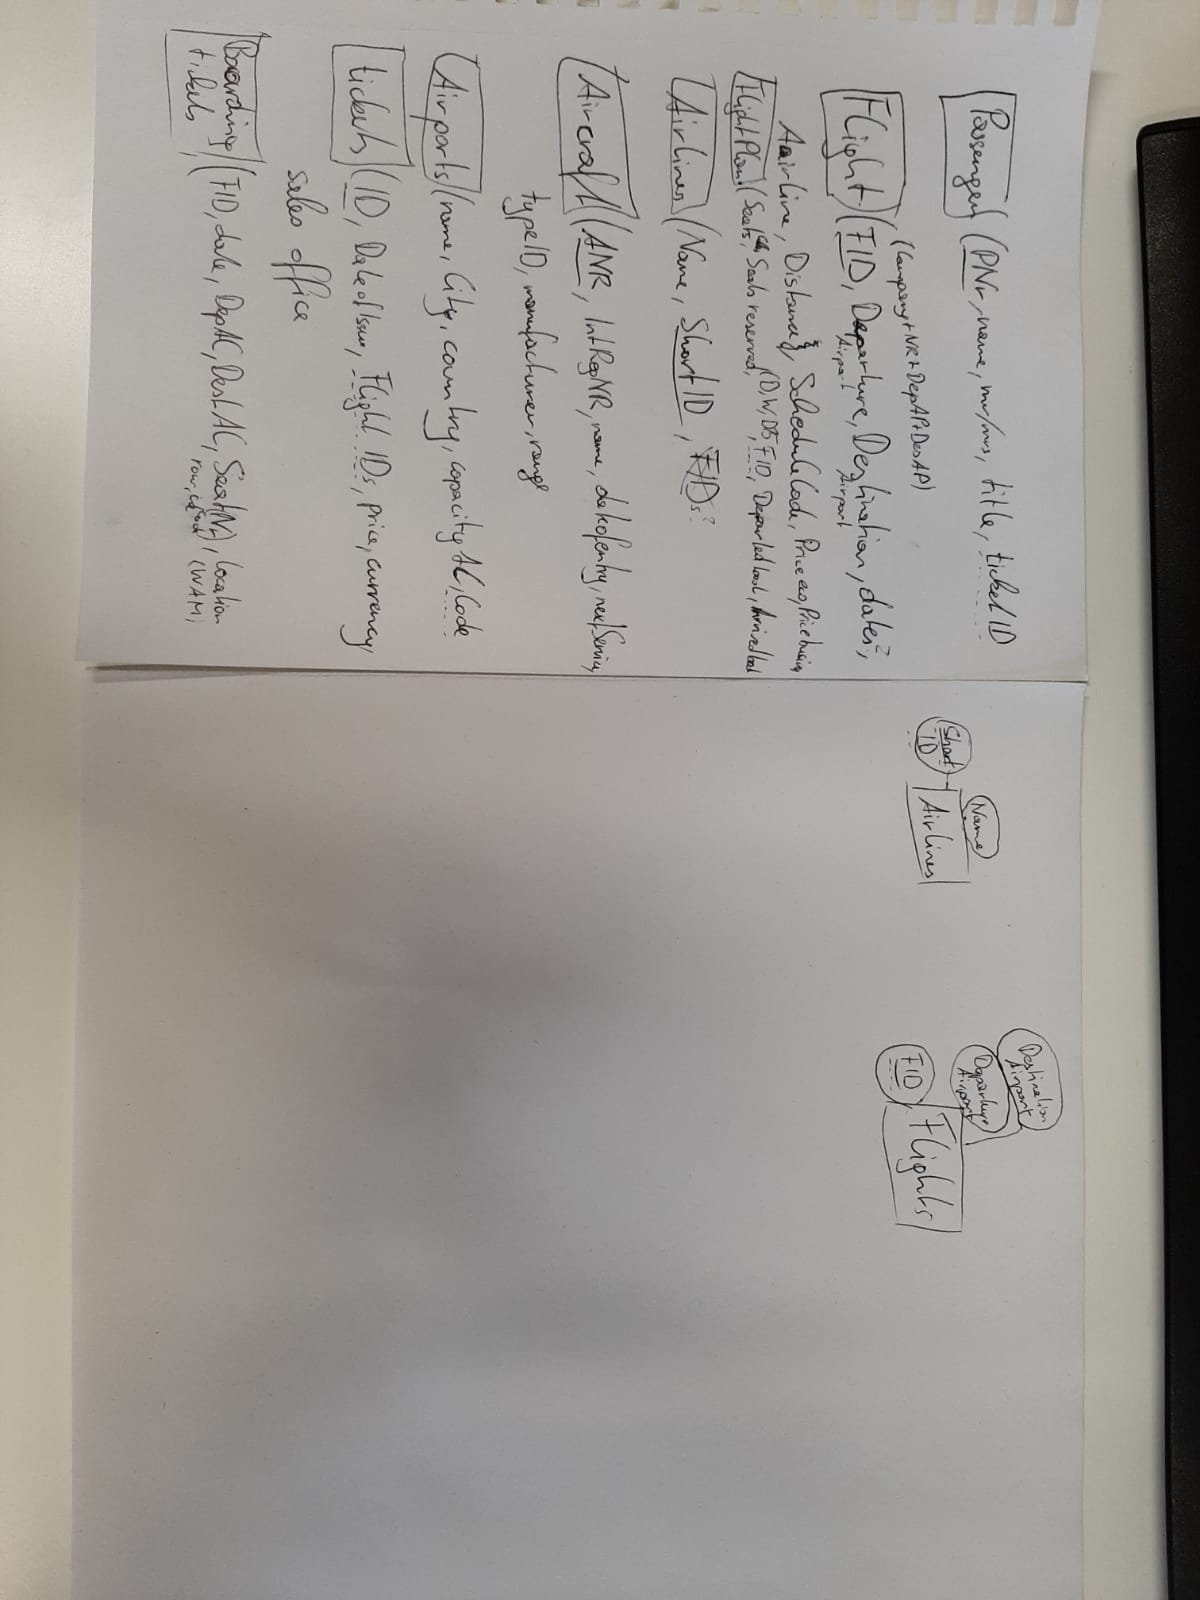 Passenger (PNr, name, mr/mrs, title, ticket ID
(Company+NR+DepAP+DesAP)
Flight (FID, Departure Airport, Destination Airport, dates?,
Airline, Distance, ScheduleCode, Price eco, Price busin
FlightPlan (Seats, Seats reserved, (D,W,DF, FID, Departed bool, Arrived bool
Airlines (Name, Short ID, FIDs?
Aircraft (ANR, IntRegNR, name, dateofentry, nextService,
typeID, manufacturer, range
Airports (name, City, country, capacity AC, Code
tickets (ID, DateofIssue, Flight IDs, price, currency,
sales office
Boarding tickets (FID, date, DepAC, DestAC, SeatNr, location
row, (WAM,
Short ID
Name
Airlines
Destination Airport
Departure Airport
FID
Flights